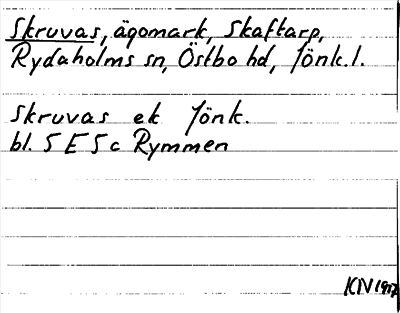 Skruvas, ägomark, Skaftarp,
Rydaholms sn, Östbo hd, Jönk.l.
Skruvas ek Jönk.
bl. 5 E 5 c Rymmen
KN 1917